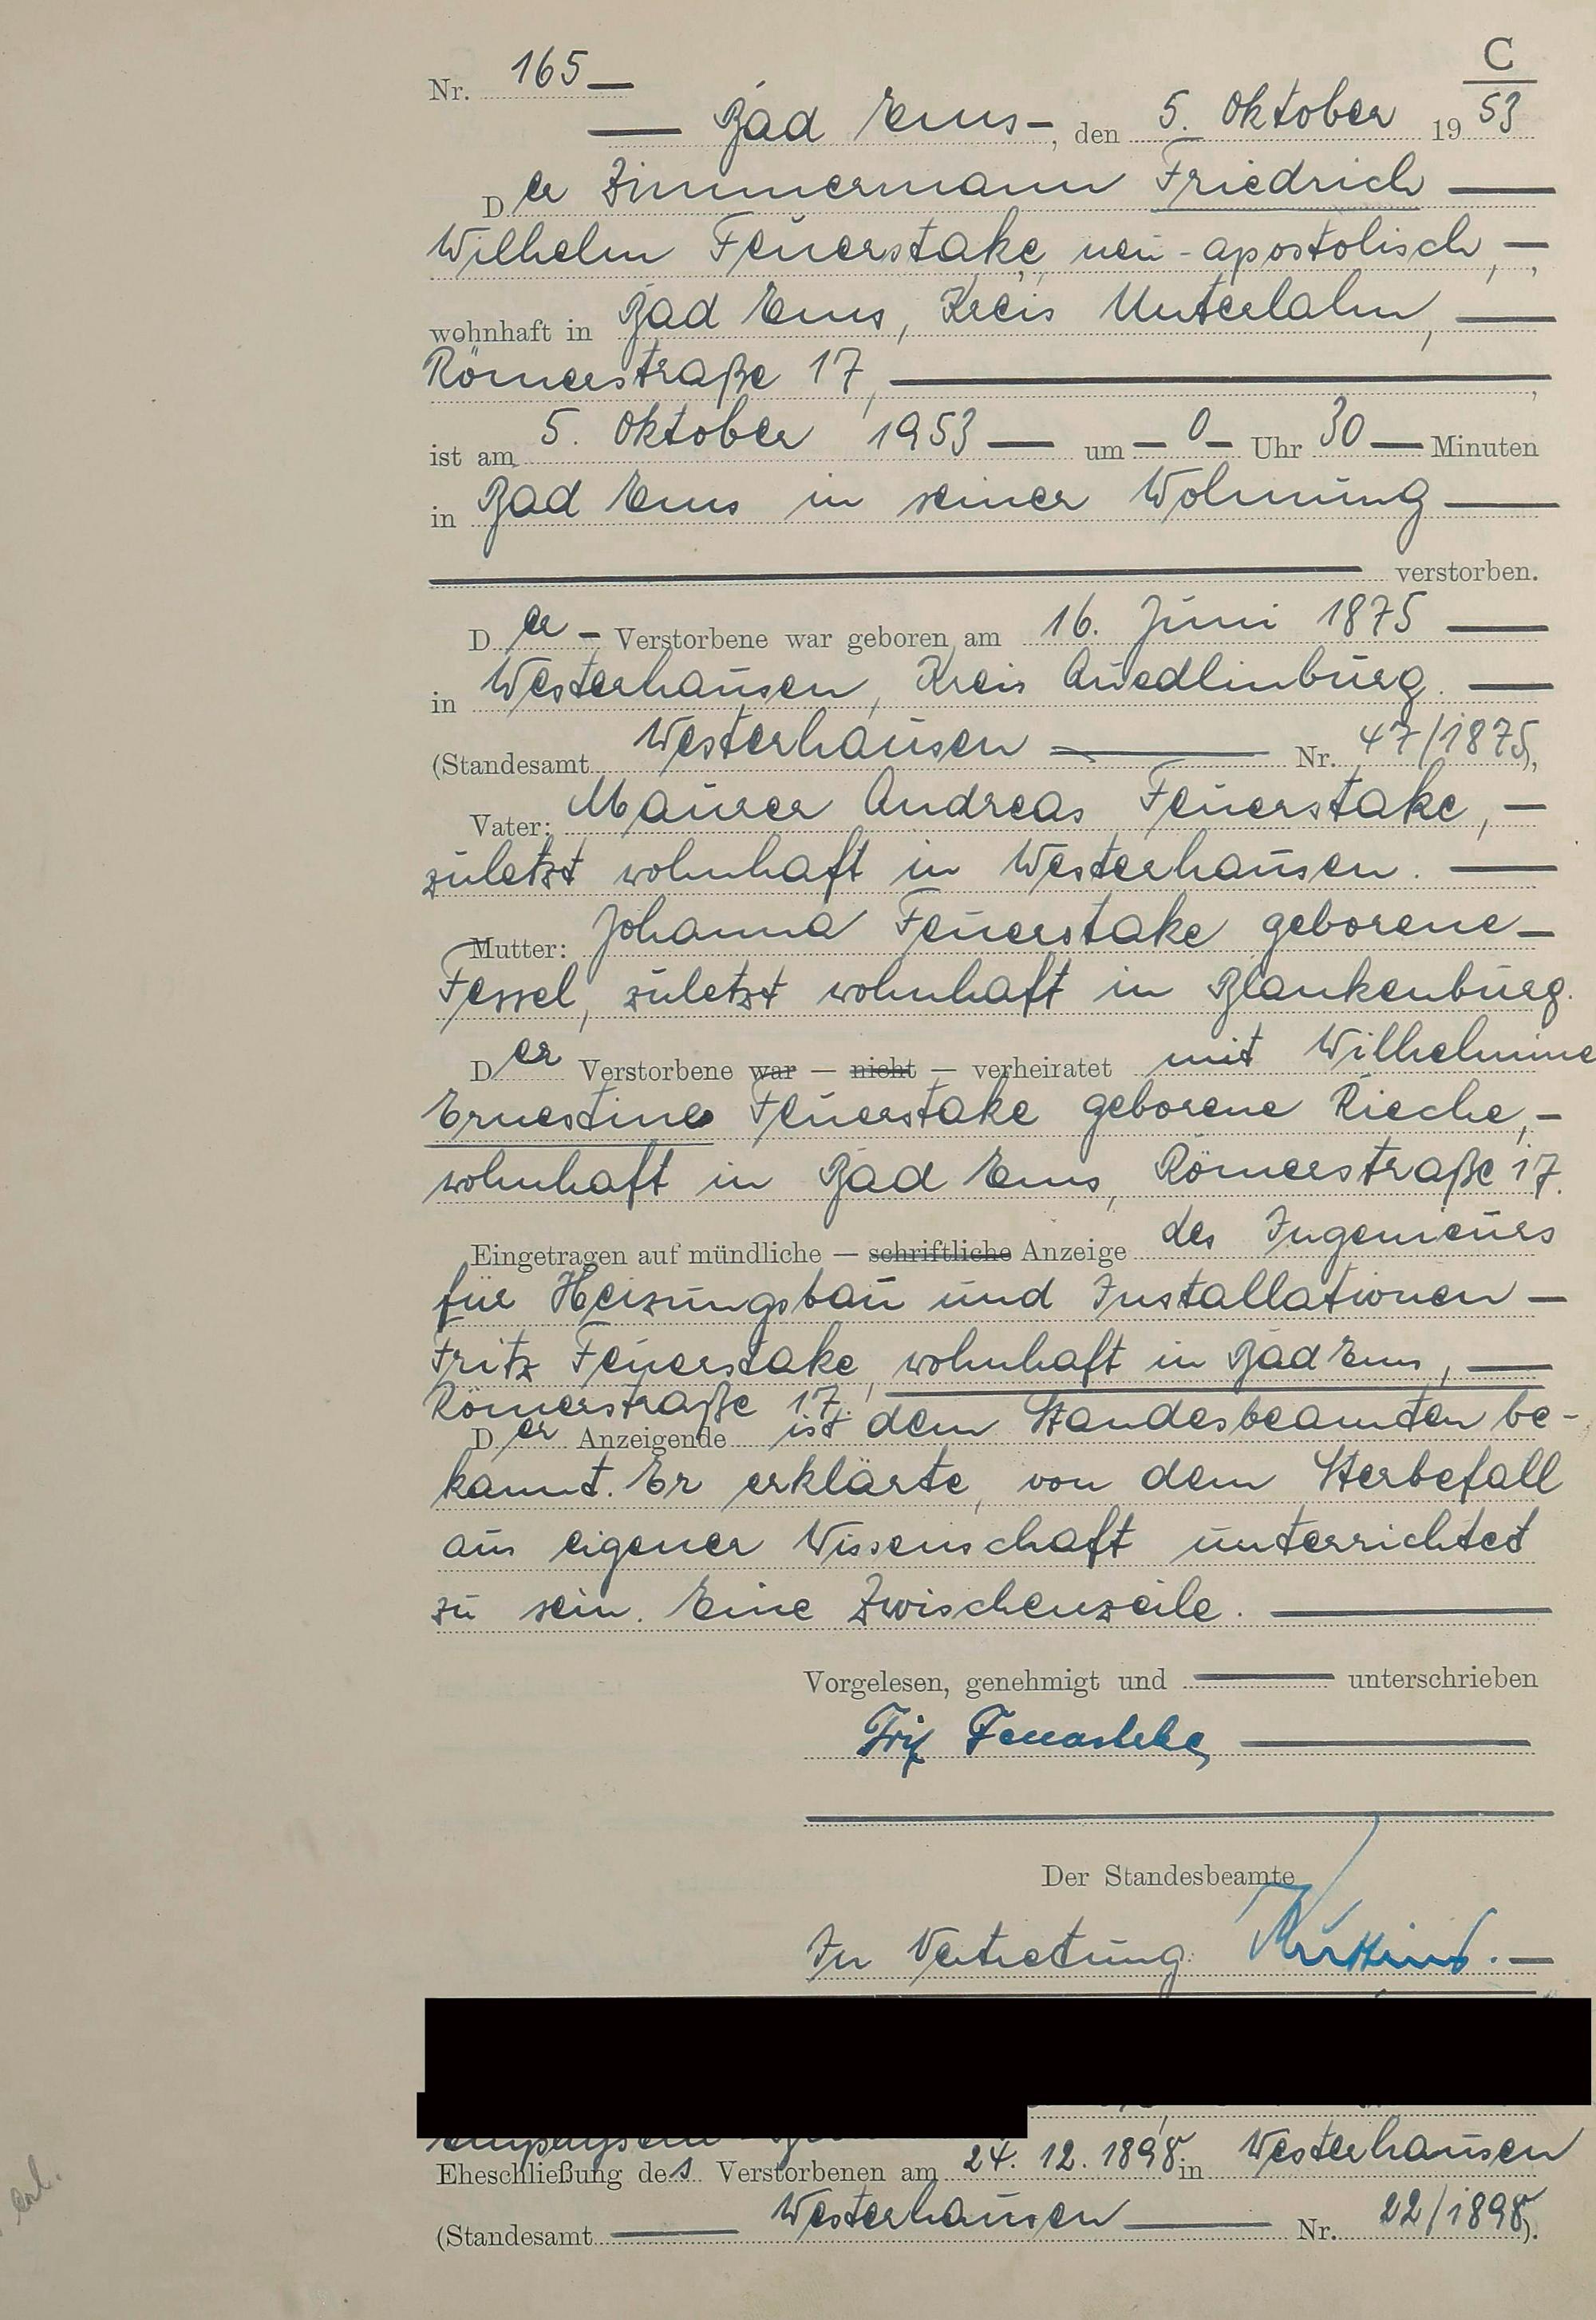 C
Nr. 165
Bad Ems, den 5. Oktober 1953
Der Zimmermann Friedrich
Wilhelm Feuerstake, neu-apostolisch,
wohnhaft in Bad Ems, Kreis Unterlahn,
Römerstraße 17,
ist am 5. Oktober 1953 um 0 Uhr 30 Minuten
in Bad Ems in seiner Wohnung
verstorben.
Der Verstorbene war geboren am 16. Juni 1875
in Westerhausen, Kreis Quedlinburg.
(Standesamt Westerhausen Nr. 47/1875),
Vater: Maurer Andreas Feuerstake,
zuletzt wohnhaft in Westerhausen.
Mutter: Johanna Feuerstake geborene
Fessel, zuletzt wohnhaft in Blankenburg.
Der Verstorbene war — nicht — verheiratet mit Wilhelmine
Ernestine Feuerstake geborene Rieche,
wohnhaft in Bad Ems, Römerstraße 17.
Eingetragen auf mündliche — schriftliche Anzeige des Ingenieurs
für Heizungsbau und Installationen
Fritz Feuerstake, wohnhaft in Bad Ems,
Römerstraße 17.
Der Anzeigende ist dem Standesbeamten be-
kannt. Er erklärte, von dem Sterbefall
aus eigener Wissenschaft unterrichtet
zu sein. Eine Zwischenzeile.
Vorgelesen, genehmigt und unterschrieben
Fritz Feuerstake
Der Standesbeamte
In Vertretung:
Eheschließung des Verstorbenen am 24. 12. 1898 in Westerhausen
(Standesamt Westerhausen Nr. 22/1898).
erl.